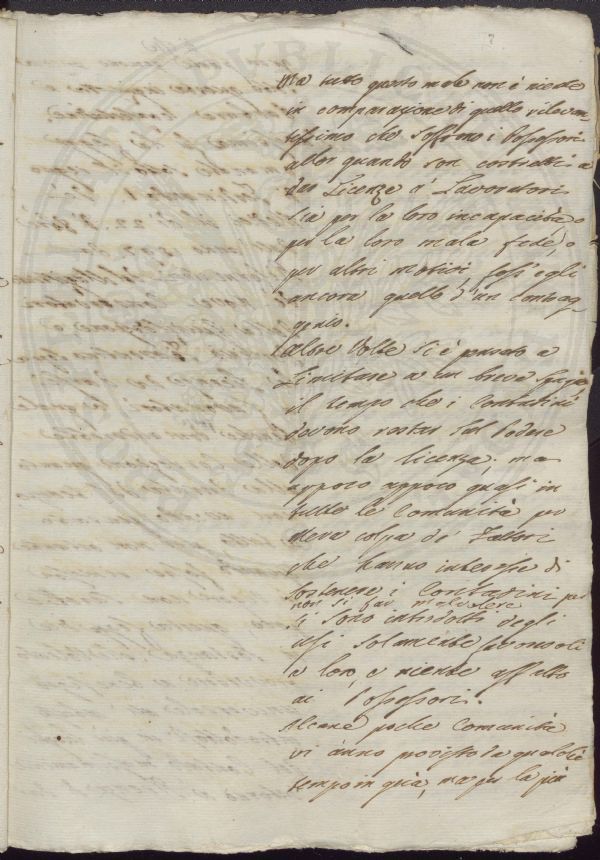 Ma tutto questo male non è niente
in comparazione di quello rilevan
tissimo che soffrono i Possessori
allor quando son costretti a
dar Licenze a' Lavoratori
sia per la loro incapacità, o
per la loro mala fede, o
per altri motivi fossi egli
ancora quello d'un Contag
genio.
Altre Volte si è pensato a
Limitare a un breve spazio
il tempo che i Contadini
devono restar sul Podere
dopo la licenza, ma
appoco appoco quasi in
tutte le Comunità per
mera colpa de' Fattori
che hanno interesse di
sostenere i Contadini per
non si far malvolere
si sono introdotti degli
usi solamente favorevoli
a loro, e niente affatto
ai Possessori.
Alcune poche Comunità
vi anno provisto da qualche
tempo in quà, ma per la più